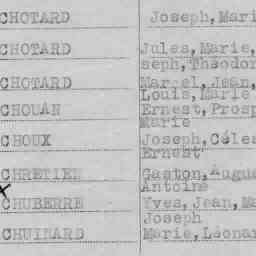 CHOTARD Joseph, Mari
CHOTARD Jules, Marie,
seph, Theodor
CHOTARD Marcel, Jean,
Louis, Marie
CHOUAN Ernest, Prosp
Marie
CHOUX Joseph, Céles
Ernest
CHRETIEN Gaston, Augu
Antoine
CHUBERRE Yves, Jean, Ma
Joseph
CHUINARD Marie, Léonar